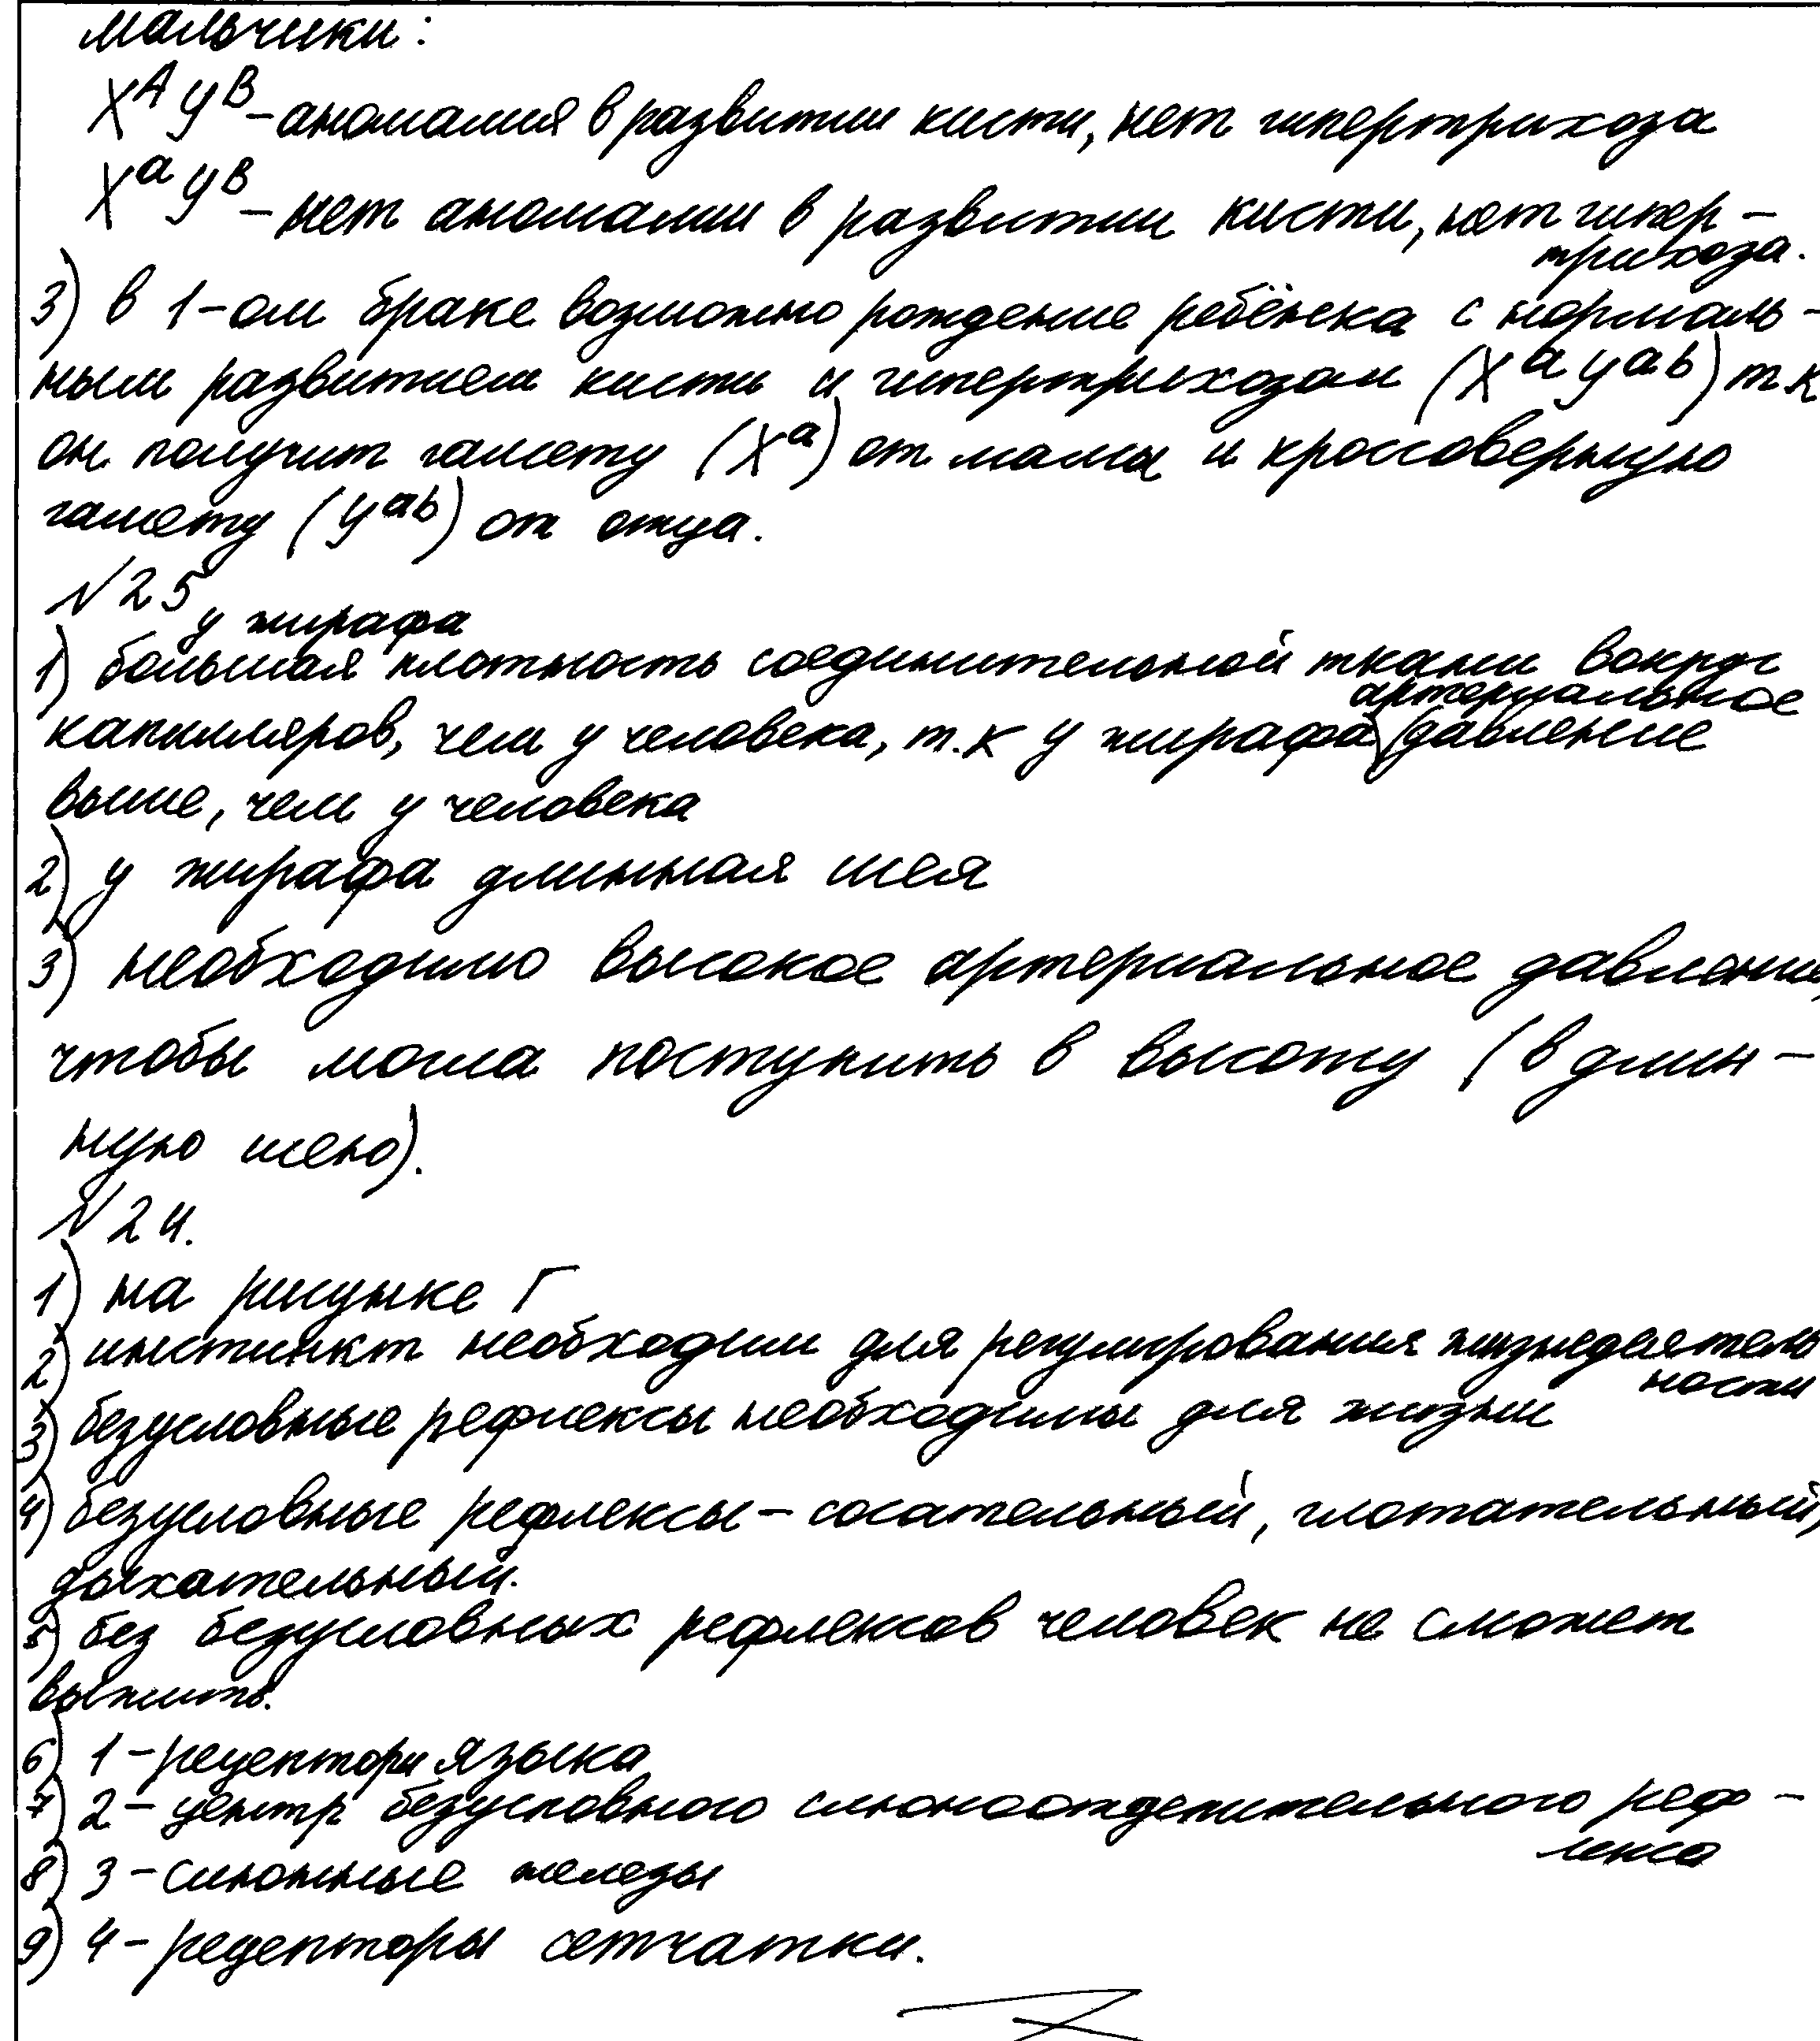 мальчики:
X^A У^B – аномалия в развитии кисти, нет гипертрихоза
X^a У^B – нет аномалии в развитии кисти, нет гипер-
трихоза.
3) в 1-ом браке возможно рождение ребёнека с нормаль-
ным развитием кисти и гипертрихозом (X^a У^ab) т.к
он получит гамету (X^a) от мамы и кроссоверную
гамету (У^ab) от отца.
N 25
у жирафа
1) большая плотность соединительной ткани вокруг
капилляров, чем у человека, т.к у жирафа артериальное давление
выше, чем у человека
2) у жирафа длинная шея
3) необходимо высокое артериальное давление,
чтобы могла поступить в высоту (в длин-
ную шею).
N 24.
1) на рисунке Г
2) инстинкт необходим для регулирования жизнедеятель
ности
3) безусловные рефлексы необходимы для жизни
4) безусловные рефлексы – сосательный, глотательный,
дыхательный.
5) без безусловных рефлексов человек не сможет
выжить.
6) 1 – рецептори языка
7) 2 – центр безусловного слюноотделительного реф-
лекса
8) 3 – слюнные железы
9) 4 – рецепторы сетчатки.